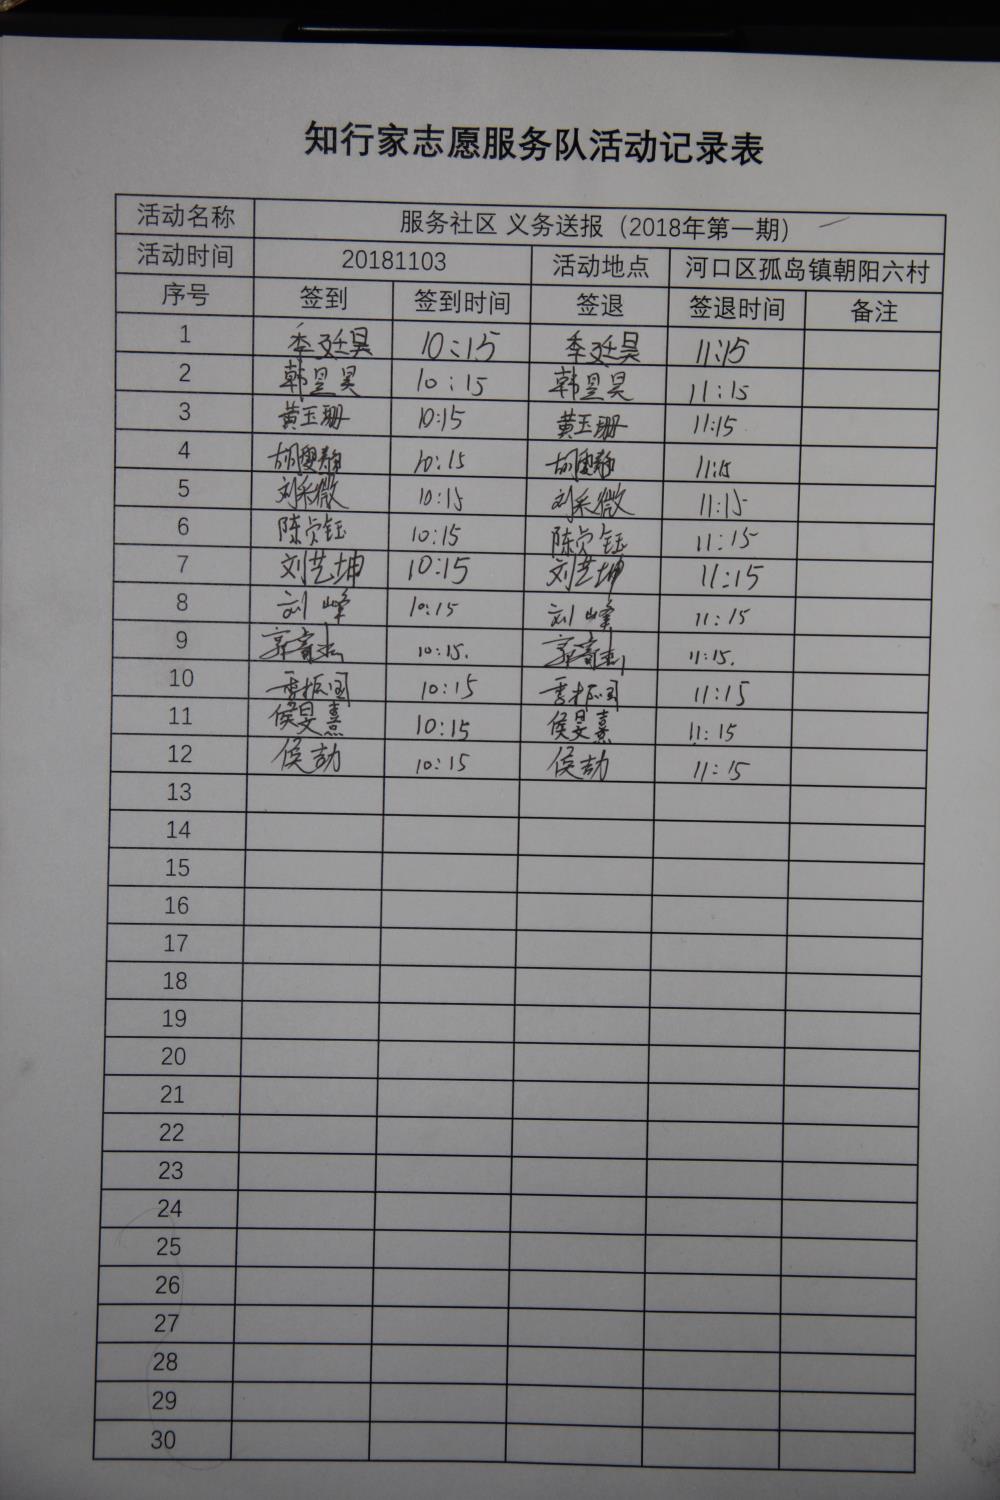 知行家志愿服务队活动记录表
活动名称 服务社区 义务送报（2018年第一期）
活动时间 20181103 活动地点 河口区孤岛镇朝阳六村
序号 签到 签到时间 签退 签退时间 备注
1 季廷昊 10:15 季廷昊 11:15
2 韩昱昊 10:15 韩昱昊 11:15
3 黄玉珊 10:15 黄玉珊 11:15
4 10:15 11:15
5 刘采微 10:15 刘采微 11:15
6 陈贞钰 10:15 陈贞钰 11:15
7 刘艺坤 10:15 刘艺坤 11:15
8 刘峰 10:15 刘峰 11:15
9 10:15. 11:15.
10 季振国 10:15 季振国 11:15
11 侯旻熹 10:15 侯旻熹 11:15
12 侯劼 10:15 侯劼 11:15
13
14
15
16
17
18
19
20
21
22
23
24
25
26
27
28
29
30